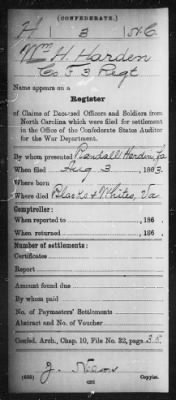 (CONFEDERATE.)
H 3 N.C.
Wm H. Harden
Co. F 3 Regt
Name appears on a
Register
of Claims of Deceased Officers and Soldiers from
North Carolina which were filed for settlement
in the Office of the Confederate States Auditor
for the War Department.
By whom presented Randall Hardin, Fa
When filed Aug 3, 1863.
Where born
Where died Blacks & Whites, Va
Comptroller:
When reported to , 186 .
When returned , 186 .
Number of settlements:
Certificates
Report
Amount found due
By whom paid
No. of Paymasters' Settlements
Abstract and No. of Voucher
Confed. Arch., Chap. 10, File No. 22, page 35
J.
(635) Copyist.